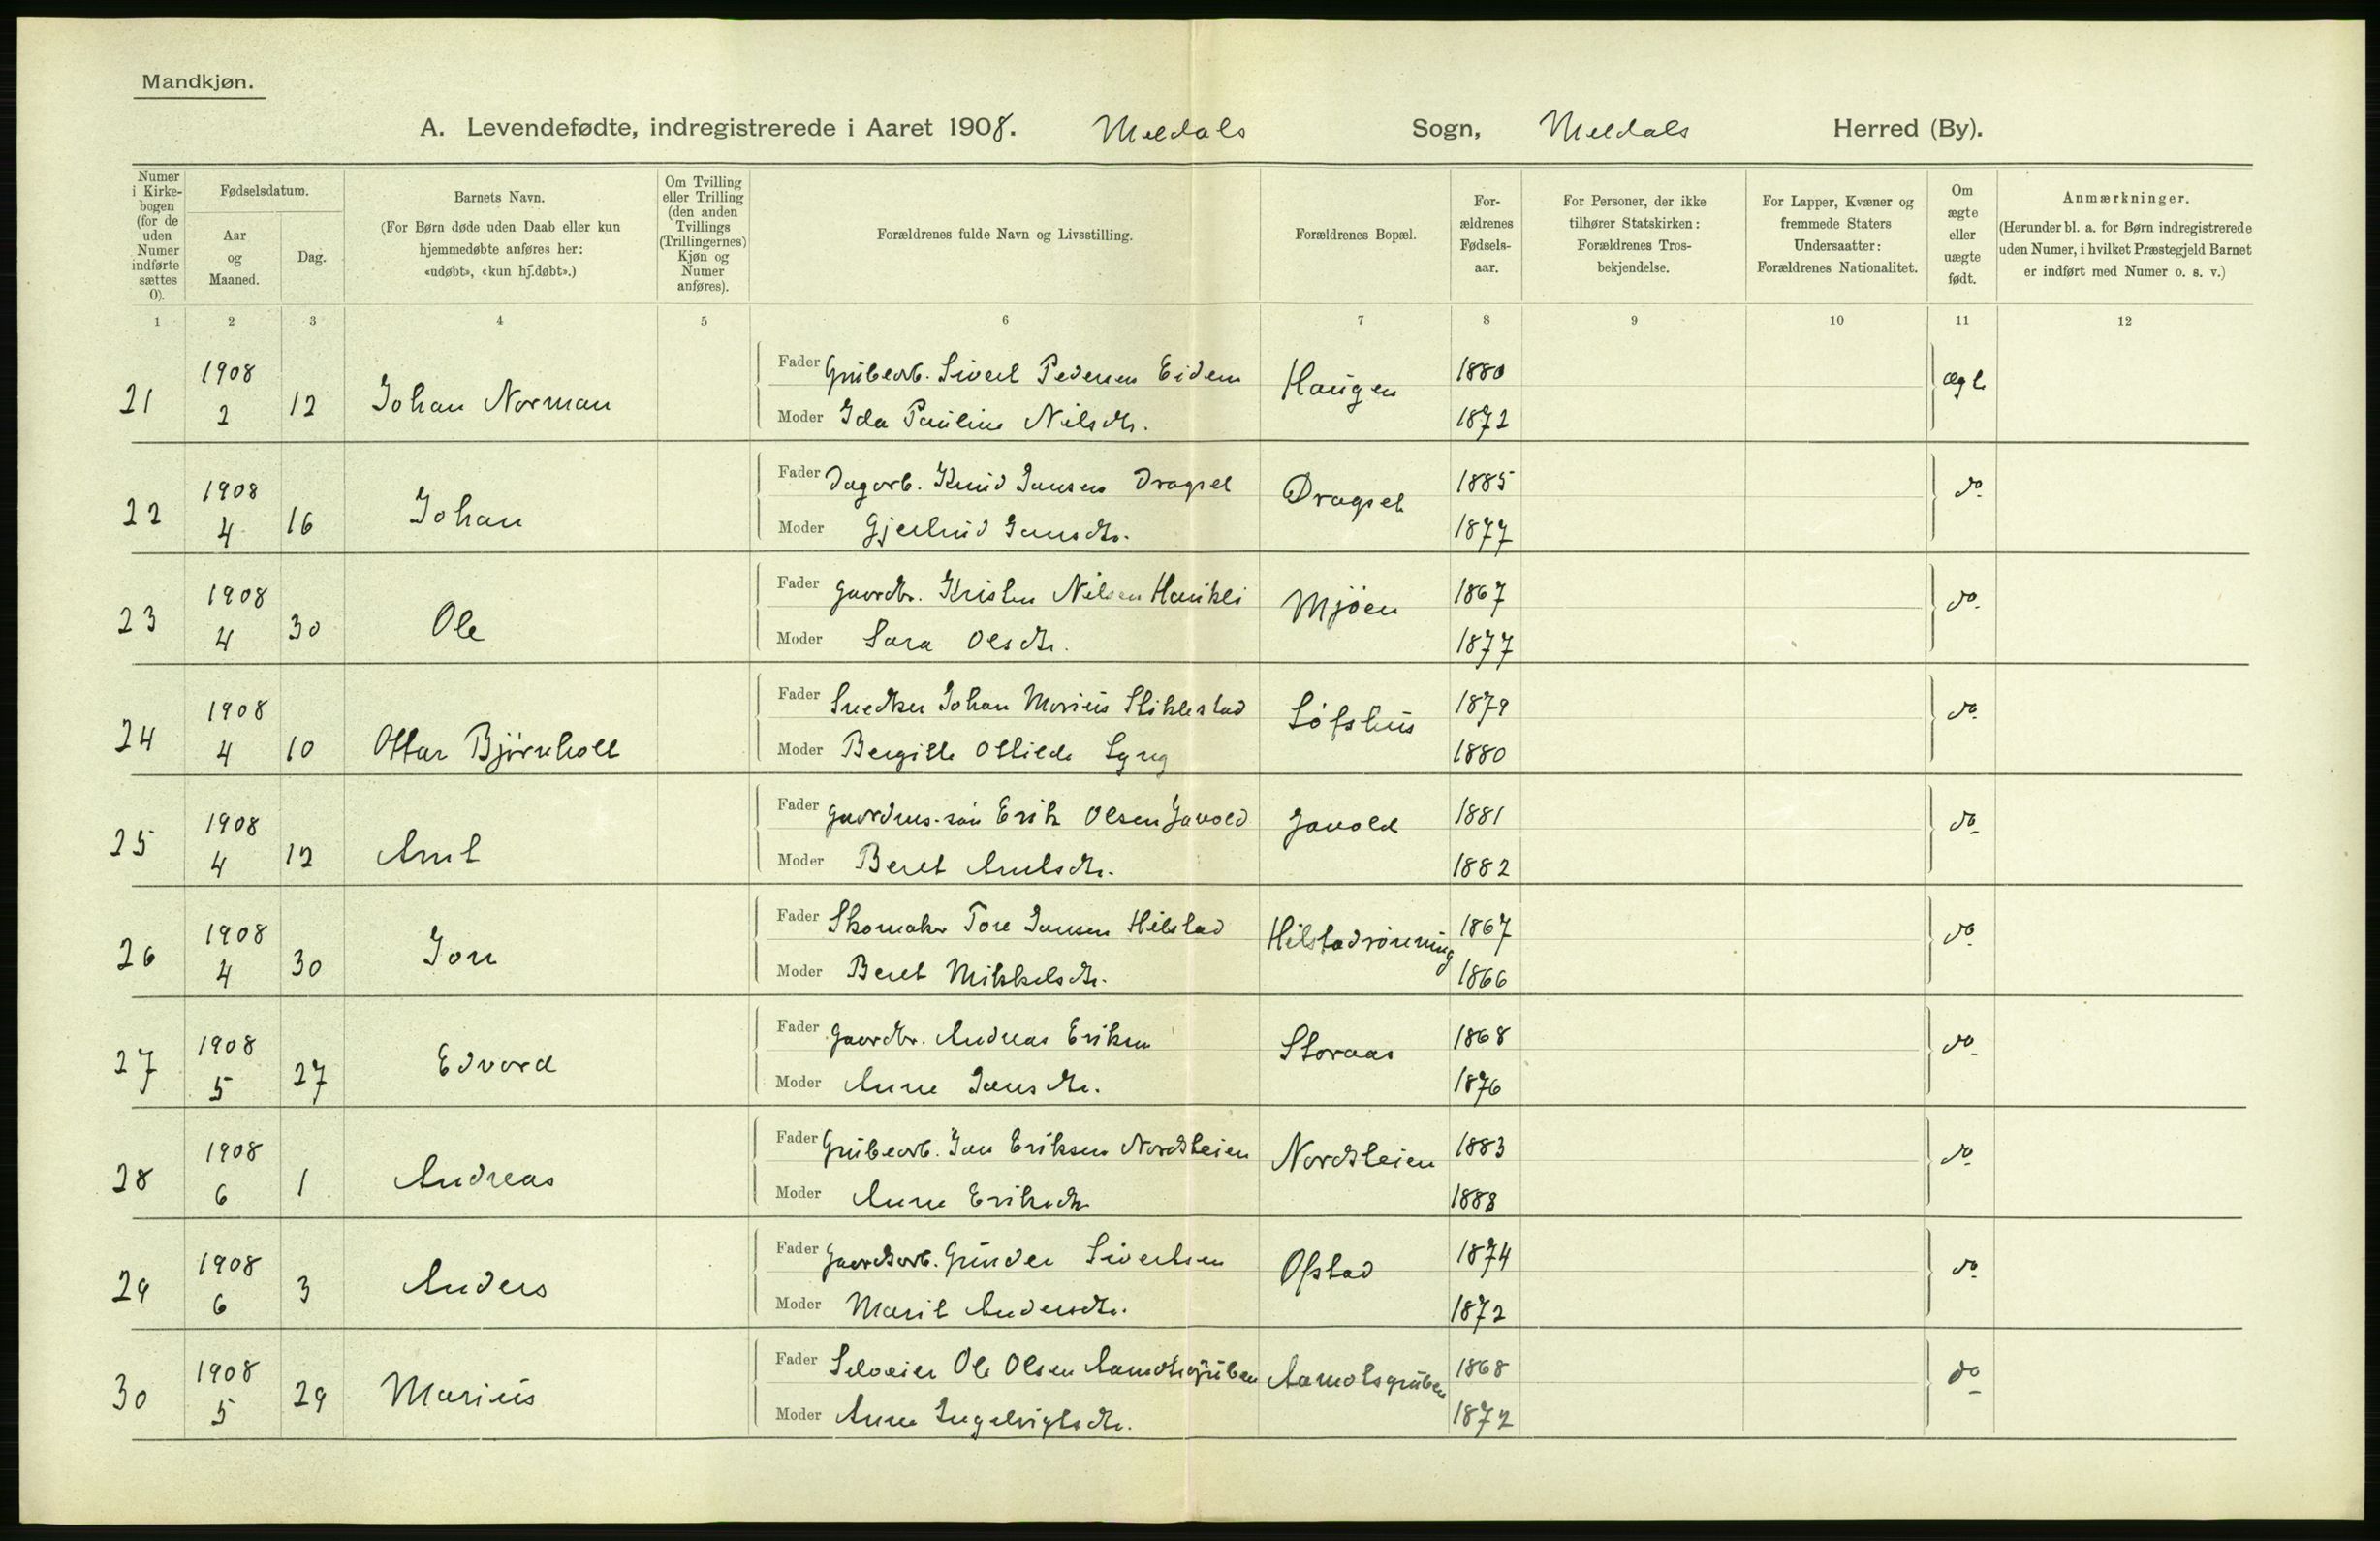 Mandkjøn.
A. Levendefødte, indregistrerede i Aaret 1908. Meldals Sogn, Meldals Herred (By).
Numer i Kirkebogen (for de uden Numer indførte sættes 0).
Fødselsdatum.
Aar og Maaned.
Dag.
Barnets Navn.
(For Børn døde uden Daab eller kun hjemmedøbte anføres her: «udøbt», «kun hj.døbt».)
Om Tvilling eller Trilling (den anden Tvillings (Trillingernes) Kjøn og Numer anføres).
Forældrenes fulde Navn og Livsstilling.
Forældrenes Bopæl.
Forældrenes Fødselsaar.
For Personer, der ikke tilhører Statskirken: Forældrenes Trosbekjendelse.
For Lapper, Kvæner og fremmede Staters Undersaatter: Forældrenes Nationalitet.
Om ægte eller uægte født.
Anmærkninger.
(Herunder bl. a. for Børn indregistrerede uden Numer, i hvilket Præstegjeld Barnet er indført med Numer o. s. v.)
1 2 3 4 5 6 7 8 9 10 11 12
21 1908 2 12 Johan Norman
Fader Grubearb. Sivert Pedersen Eidem Haugen 1880 ægte
Moder Ida Pauline Nilsdtr. 1872
22 1908 4 16 Johan
Fader Dagarb. Knud Jansen Dragset Dragset 1885 do
Moder Gjertrud Jansdtr. 1877
23 1908 4 30 Ole
Fader Gaardbr. Kristen Nilsen Haukli Mjöen 1867 do
Moder Sara Olsdtr. 1877
24 1908 4 10 Ottar Bjørnholt
Fader Snedker Johan Marius Stiklestad Löfshus 1879 do
Moder Bergitte Ottilde Lyng 1880
25 1908 4 12 Arnt
Fader Gaardms. sön Erik Olsen Javold Javold 1881 do
Moder Beret Arntsdtr. 1882
26 1908 4 30 Jon
Fader Skomaker Tore Jansen Hilstad Hilstadrönning 1867 do
Moder Beret Mikkelsdtr. 1866
27 1908 5 27 Edvard
Fader Gaardbr. Andreas Eriksen Storaas 1868 do
Moder Anne Jansdtr. 1876
28 1908 6 1 Andreas
Fader Grubearb. Jon Eriksen Nordsteien Nordsteien 1883 do
Moder Anne Eriksdtr 1888
29 1908 6 3 Anders
Fader Gaardsarb. Gunder Sivertsen Ofstad 1874 do
Moder Marit Andersdtr. 1872
30 1908 5 29 Marius
Fader Selveier Ole Olsen Aamotsgruben Aamotsgruben 1868 do
Moder Anne Ingebrigtsdtr. 1872